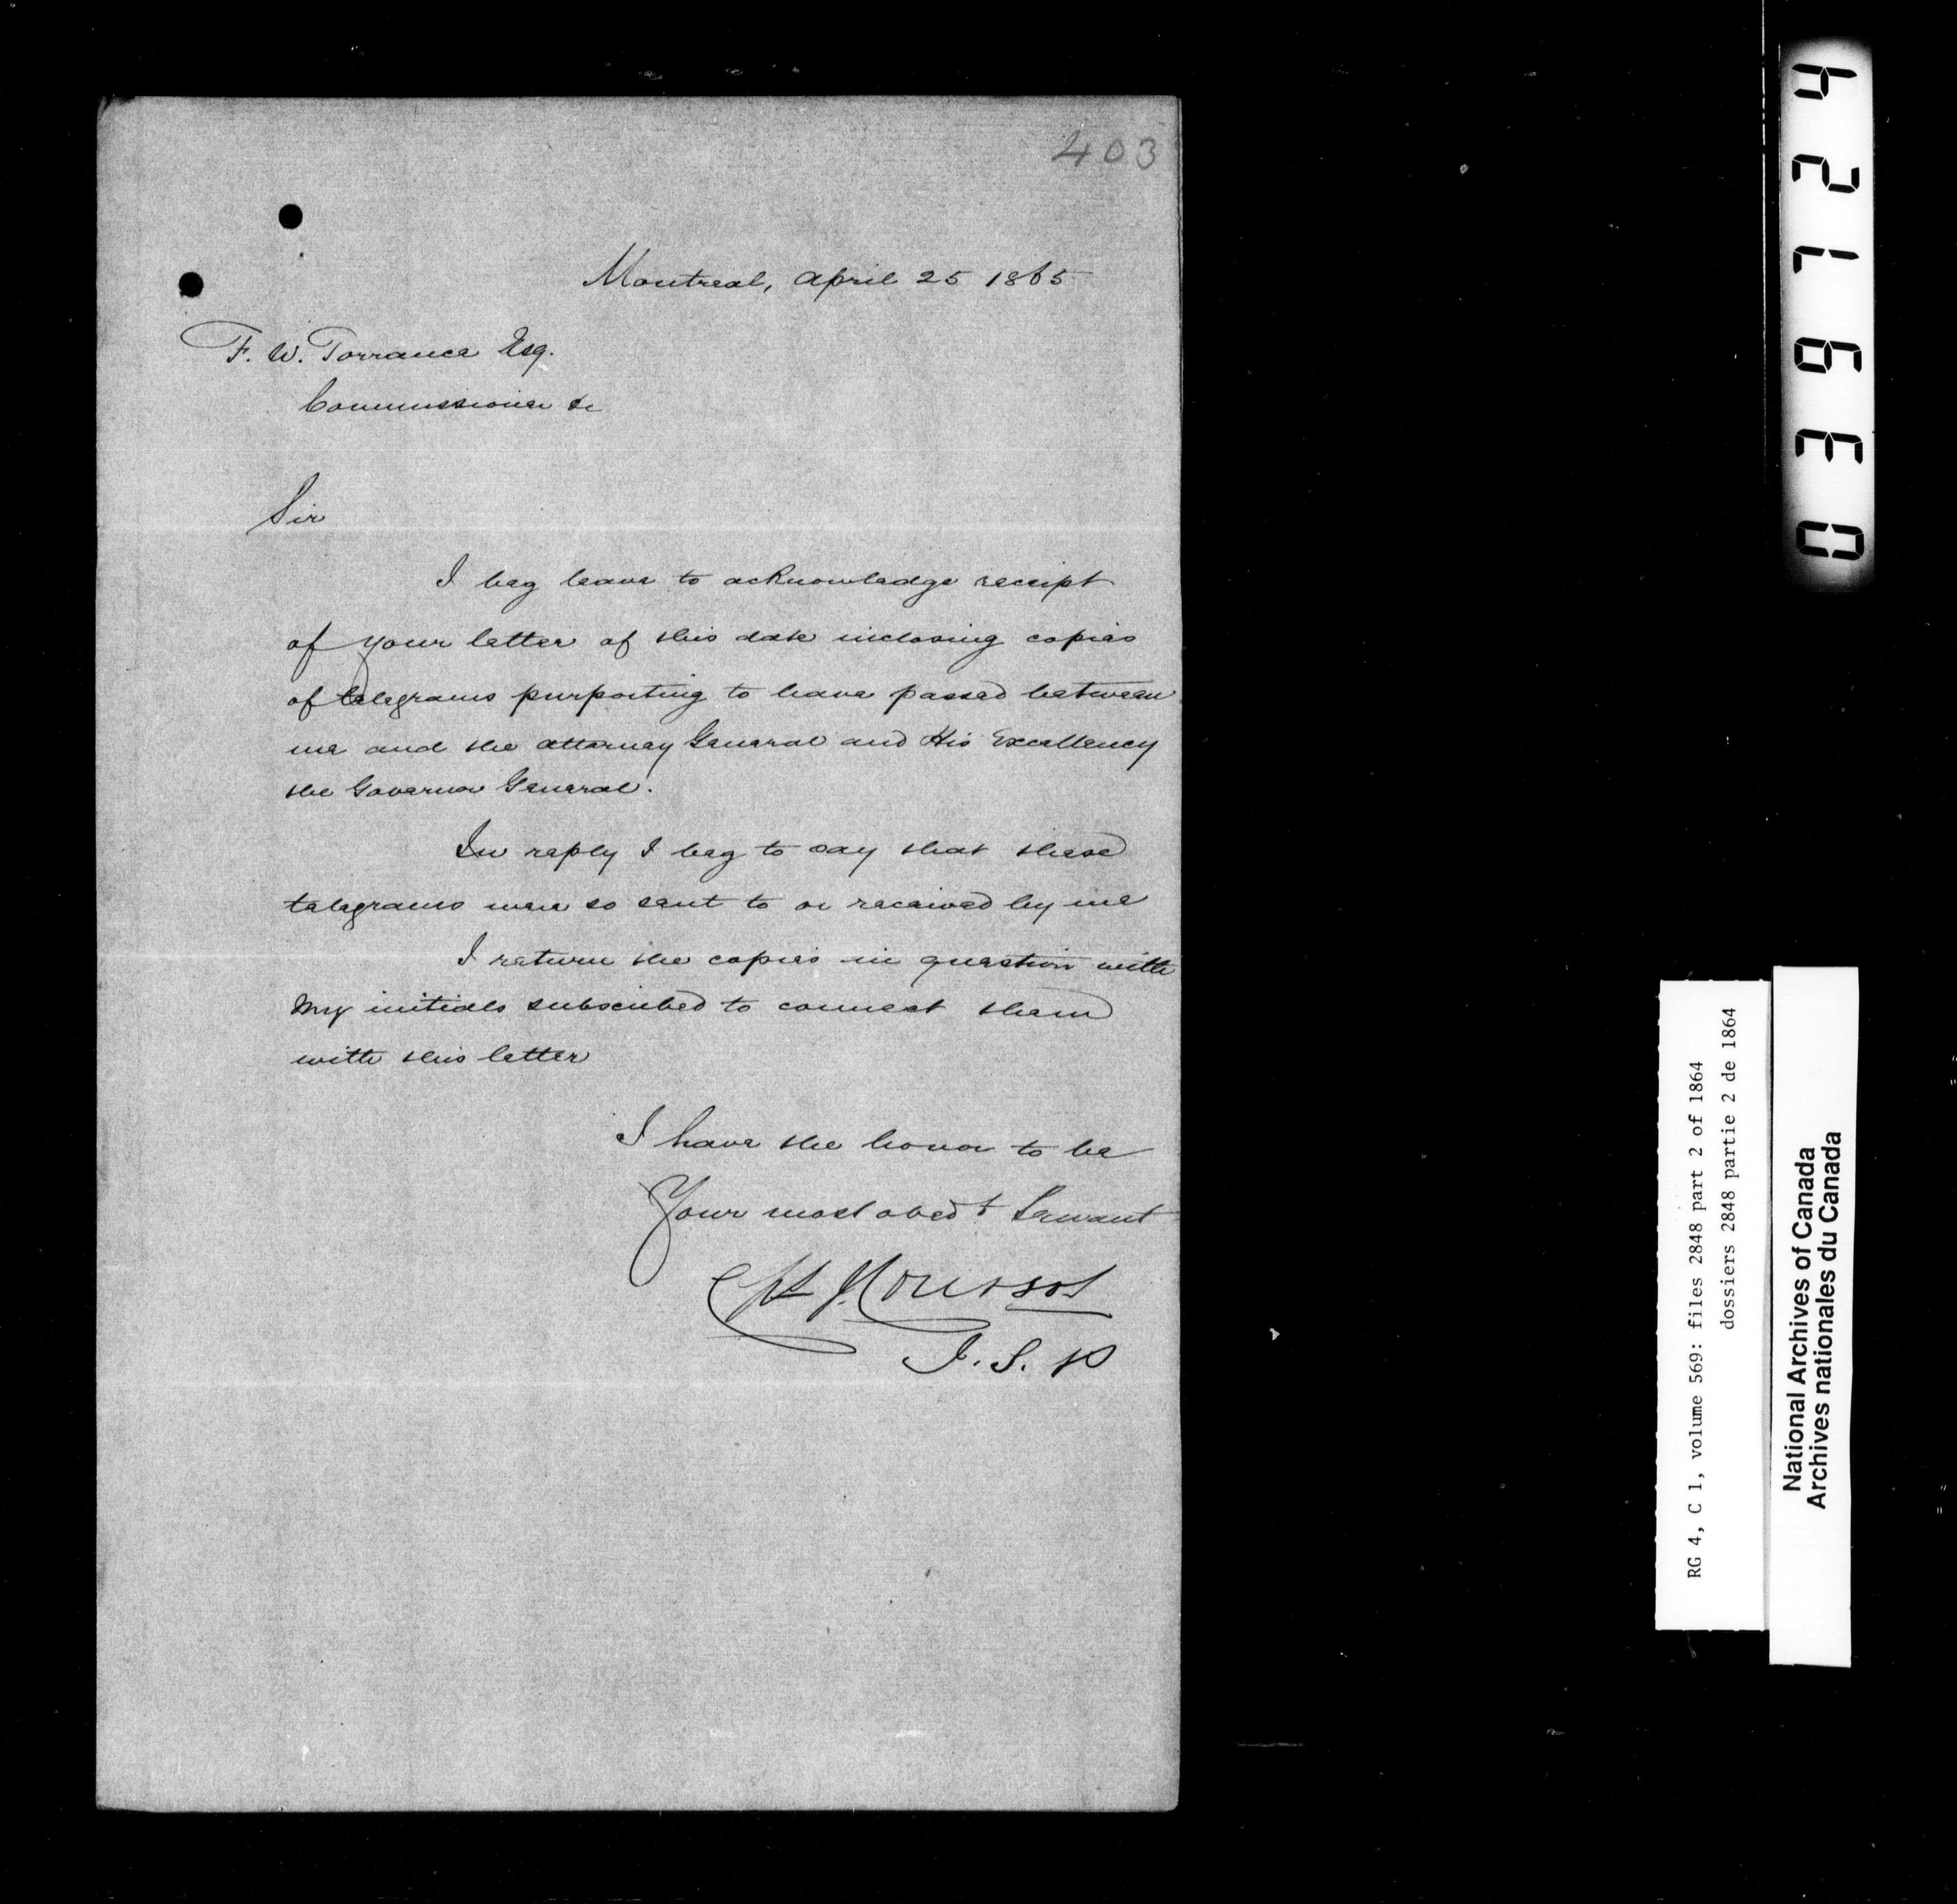 403
Montreal, April 25 1865
F. W. Torrance Esq.
Commissioner &c
Sir
I beg leave to acknowledge receipt
of your letter of this date inclosing copies
of telegrams purporting to have passed between
me and the Attorney General and His Excellency
the Governor General.
In reply I beg to say that these
telegrams were so sent to or received by me
I return the copies in question with
my initials subscribed to connect them
with this letter
I have the honor to be
Your most obedt Servant
J. S. P
421630
RG 4, C 1, volume 569: files 2848 part 2 of 1864
dossiers 2848 partie 2 de 1864
National Archives of Canada
Archives nationales du Canada